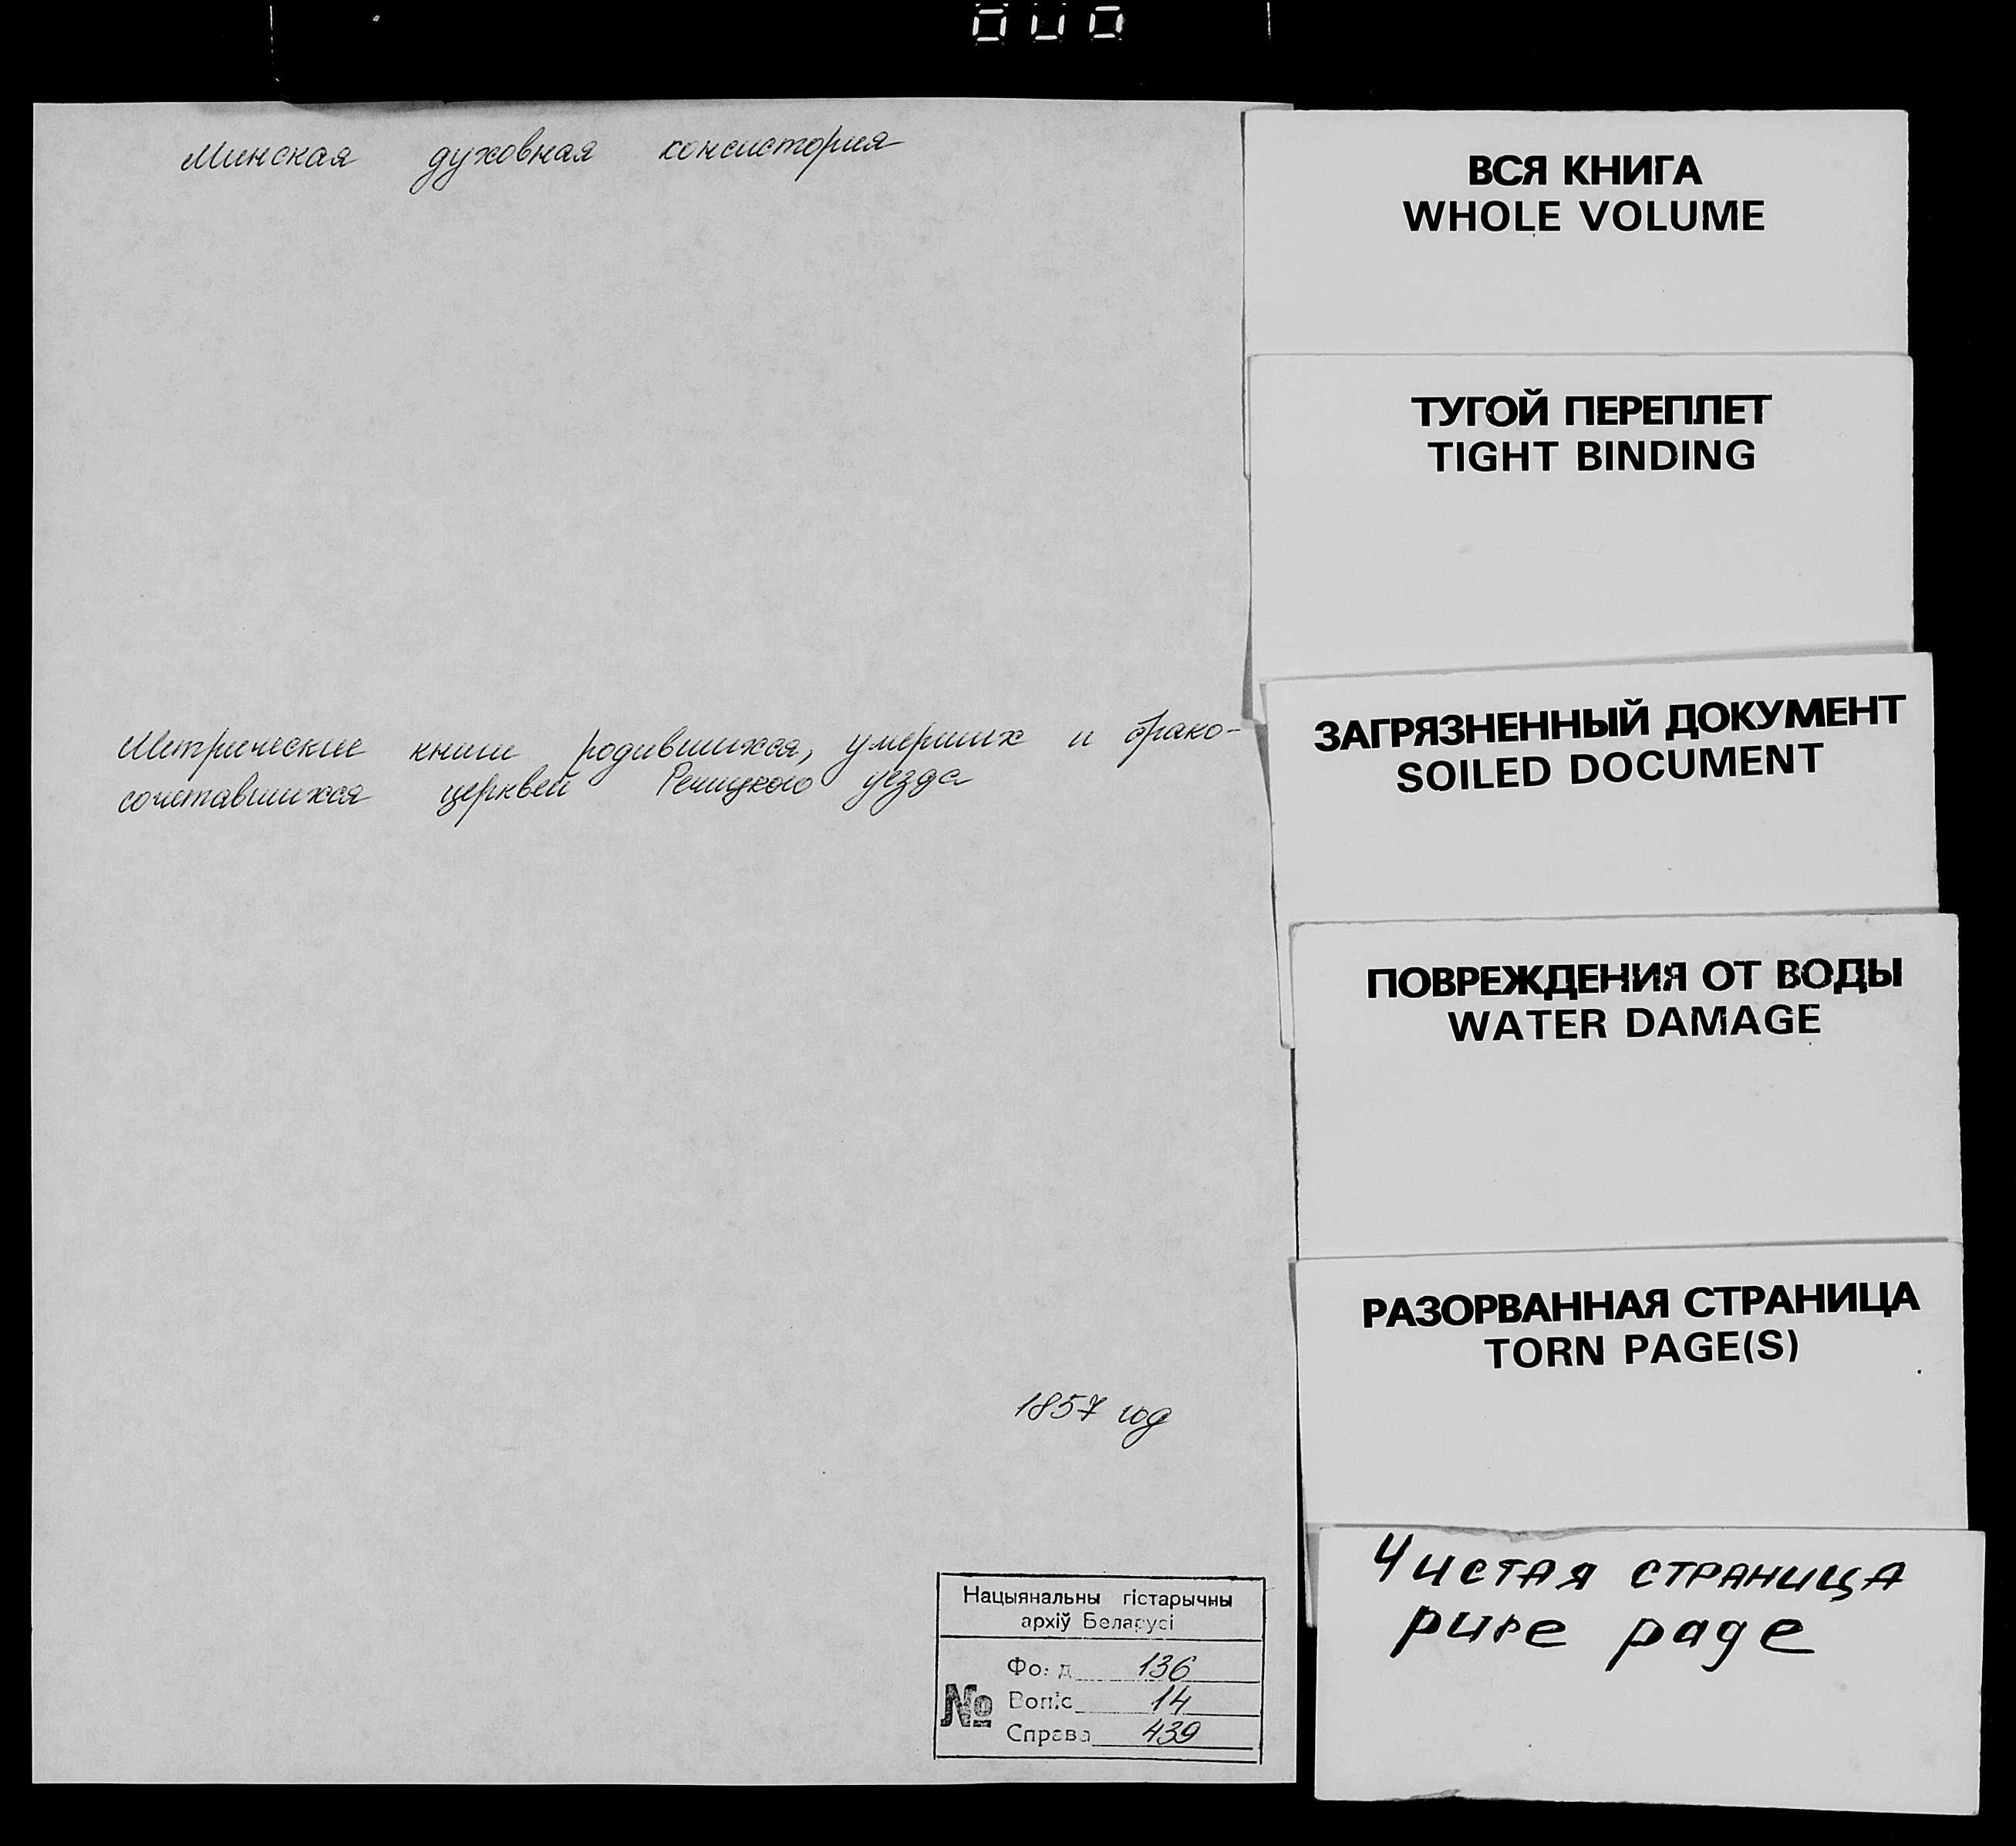 Минская духовная консистория
Метрические книги родившихся, умерших и брако-
сочетавшихся церквей Речицкого уезда
1857 год
Нацыянальны гістарычны
архіў Беларусі
Фонд 136
№ Вопіс 14
Справа 439
ВСЯ КНИГА
WHOLE VOLUME
ТУГОЙ ПЕРЕПЛЕТ
TIGHT BINDING
ЗАГРЯЗНЕННЫЙ ДОКУМЕНТ
SOILED DOCUMENT
ПОВРЕЖДЕНИЯ ОТ ВОДЫ
WATER DAMAGE
РАЗОРВАННАЯ СТРАНИЦА
TORN PAGE(S)
Чистая страница
pure page